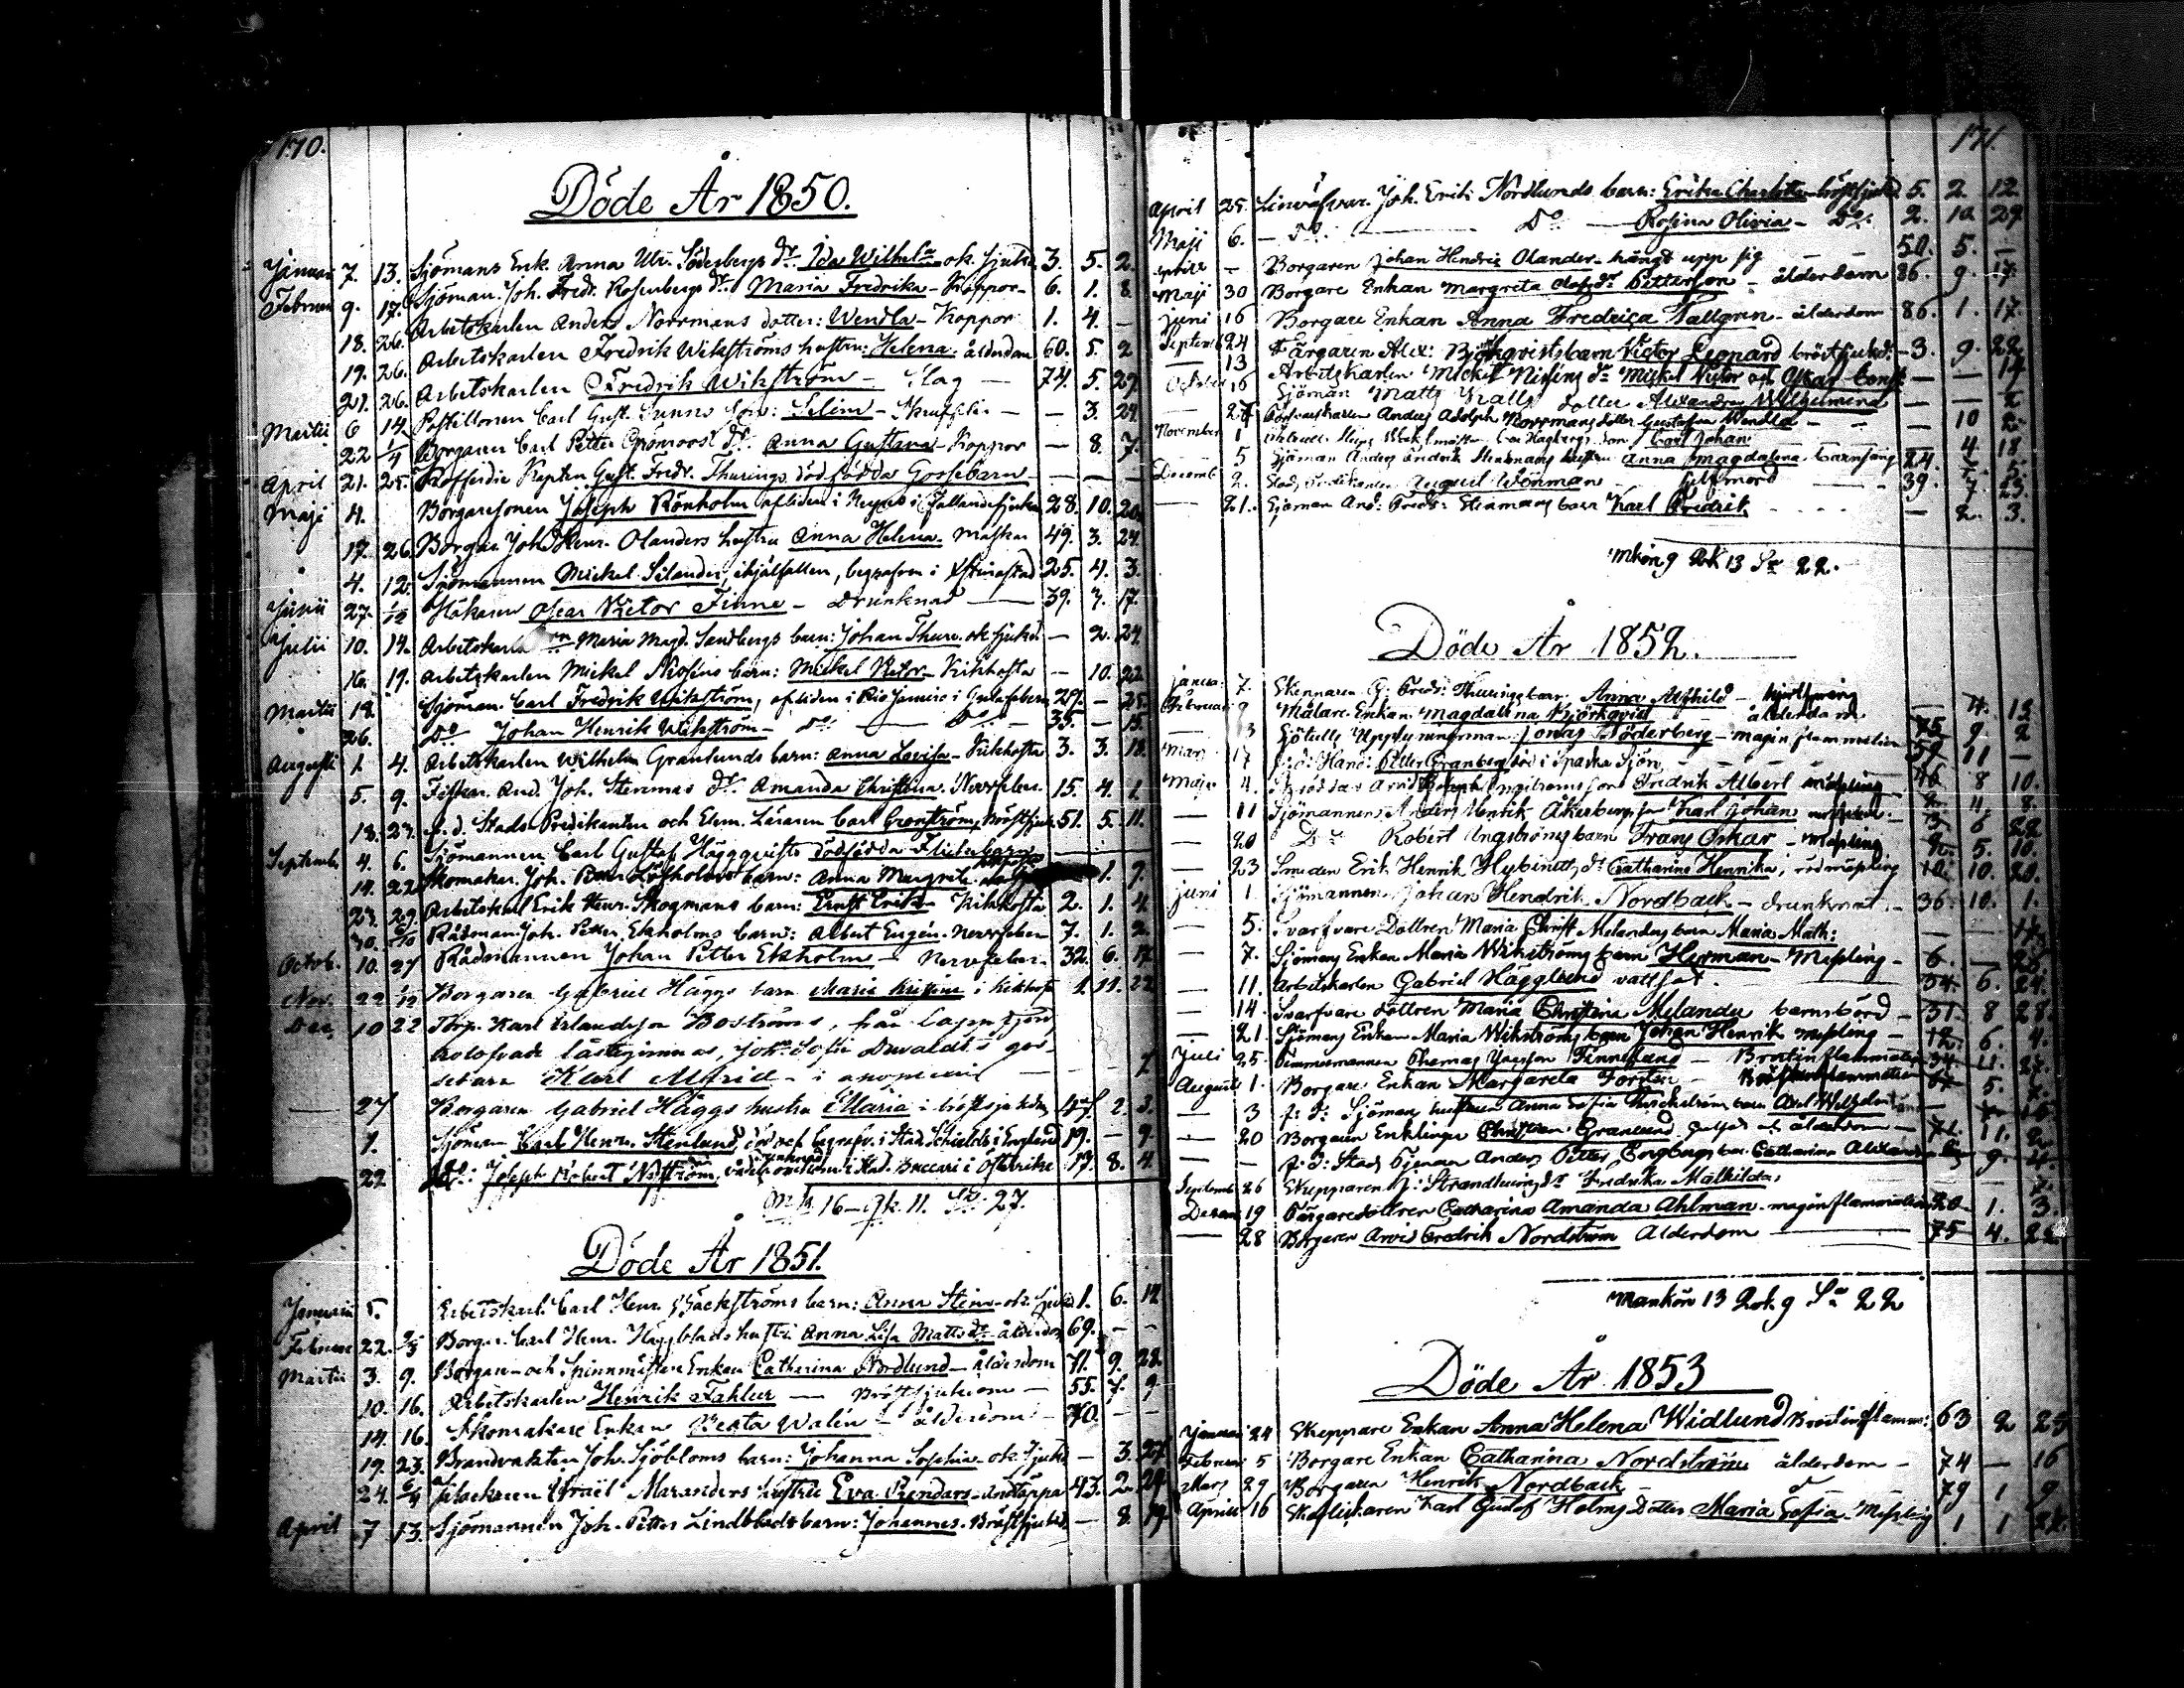 170.
Döde År 1850.
Januari 7. 13. Sjömans Enk. Anna Ulr. Söderbergs dr. Ida Wilhelma ok. sjukd. 3. 5. 2.
Februari 9. 17. Sjöman. Joh. Fredr. Rosenbergs dr. Maria Fredrika - Koppor - 6. 1. 8.
18. 26. Arbetskarlen Anders Norrmans dotter: Wendla - Koppor 1. 4. -
19. 26. Arbetskarlen Fredrik Wikströms hustru: Helena. ålderdom 60. 5. 2
21. 26. Arbetskarlen Fredrik Wikström - Slag - 74. 5. 29.
Martii 6 14. Postillonen Carl Gust. Sunns son: Selim - - - 3. 29.
22 1/4 Borgaren Carl Petter Grönroos' dr. Anna Gustava - Koppor - 8. 7.
April 21. 25. Koffardie Kapten Gust. Fredr. Thurings dödfödda Gossebarn - - -
Maji 4. Borgaresonen Joseph Rönholm afliden i 28. 10. 20.
17. 26. Borgar. Joh. Henr. Olanders hustru Anna Helena. Maskar 49. 3. 24.
4. 12. Sjömannen Mickel Silander, ihjälfallen, begrafven i Kristinastad 25. 4. 3.
Junii 27. Hökaren Oscar Victor Finne - Drunknad - 39. 7. 17.
Julii 10. 14. Maria Magd. Sandbergs barn: Johan Thure. ok sjukd. - 2. 24.
16. 19. Arbetskarlen Mickel barn: Mickel Victor - Kikhosta - 10. 22.
Martii 18. Sjöman. Carl Fredrik Wikström, afliden i Rio Janeiro i Gula febern 29. - 25.
26. Do Johan Henrik Wikström - Do - Do - 35. - 15.
Augusti 1. 4. Arbetskarlen Wilhelm Granlunds barn: Anna Lovisa - Kikhosta 3. 3. 18.
5. 9. Fiskar. And. Joh. Stenmans dr. Amanda Christina. Nervfeber. 15. 4. 1.
18. 23. f. d. Stads Predikanten och Elem. Läraren Carl Cronström, Bröstsjukd. 51. 5. 11.
September 4. 6. Sjömannen Carl Gustaf Häggqvists dödfödda Flickebarn
14. 22. Skomakar. Joh. Petter Löfholms barn: Anna Margreta 1. 9.
23. 29. Arbetskarl Erik Henr. Skogmans barn: Ernst Erik - Kikhosta 2. 1. 4.
30. 6/10 Rådman Joh. Petter Ekholms barn: Albert Eugén. Nervfeber 7. 1. 2.
Octob. 10. 27 Rådmannen Johan Petter Ekholm - Nervfeber - 32. 6. 17.
Nov. 22 1/12 Borgaren Gabriel Häggs barn Maria Kristina i kikhosta 1. 11. 22
Dec. 10 22 Torp. Karl Erlandsson Boströms, från Lappfjerd
Joh. Sofia Dewalds gos-
sebarn Karl Alfrid -
- 27 Borgaren Gabriel Häggs hustru Maria i bröstsjukdom 47 2. 3.
1. Sjöman Carl Henr. Stenlund, död och begrafv. i Stad Schields i England 19. - 9.
22 Do: Joseph Robert Nyström, drunknad i Stad. Buccari i Österrike 17. 8. 4.
Mk. 16 - Qk. 11. Sa. 27.
Döde År 1851.
Januarii 5. Arbetskarl. Carl Henr. Bäckströms barn: Anna Stina - ok. sjukd. 1. 6. 12
Februari 22. 2/3 Borgar. Carl Henr. Häggblads hustru Anna Lisa Matts dr. ålderdom 69. - -
Martii 3. 9. Borgare- och Spinnmästare Enkan Catharina Nordlund - ålderdom 71. 9. 28.
10. 16. Arbetskarlen Henrik Fahler - Bröstsjukdom - 55. 7. 9
14. 16. Skomakare Enkan Beata Walén - ålderdom - 70. - -
19. 23. Brandvakten Joh. Sjöbloms barn: Johanna Sophia - ok. sjukd. - 3. 27.
24. Israel Maranders hustru Eva - Andtäppa 43. 2. 29.
April 7 13. Sjömannen Joh. Petter Lindblads barn: Johannes. Bröstsjukd. - 8. 19.
171.
April 25. Joh. Erik Nordlunds barn: Erika Charlotta bröstsjukd. 5. 2. 12.
Maji 6. - Do. - Do - Rosina Olivia - Do. 2. 10. 29.
Aprill - Borgaren Johan Hendric Olander - hängt upp sig 50. 5. -
Maji 30 Borgare Enkan Margreta Olofs dr Pettersson - ålderdom 86. 9. 17.
Juni 16 Borgare Enkan Anna Fredrica Tallgren - ålderdom 86. 1. 17.
Septemb 24 Färgaren Alex: Björkqvists barn Victor Leonard bröstsjukd: - 3. 9. 22.
- 13 Arbetskarlen Mickel dr Mickel Victor och Oskar Const. - - 14.
October 16 Sjöman Matts dotter Alexandra Wilhelmina
- 27 Anders Adolph Norrmans dotter Gustafva Wendla - - 10 2.
November 1 Carl Johan 4. 18
5 Sjöman Anders Hendrik hustru Anna Magdalena barnsäng 24. 7. 5.
Decemb 2. August Wörman - sjelfmord 39. 7. 23.
- 21. Sjöman And: Fredr: Stenmans barn Karl Fredrik - 2. 3.
Mkön 9 Qvk 13 Sa 22.
Döde År 1852.
Januar. 7. Skepparen G. Fredr: Thurings barn Anna Alfhild - - 4. 13
Februari 9 Målare Enkan Magdalena Björkqvist ålderdom 75 9. 2
- 13 Jonas Söderberg - magin flammation 59. 11 -
Mars 17 Petter Granberg död i Spanska Sjön 46 8 10.
Maji 4. son Fredrik Albert mässling 2. 11. 8.
- 11 Sjömannen Anders Henrik Åkerbergs son Karl Johan 3 6 22
- 20 Do Robert Engströms barn Frans Oskar - mässling 2. 5. 10.
- 23 Smeden Erik Henrik dr Catharina Henrika, rödmässling 10. 10. 20.
Juni 1 Sjömannen Johan Hendrik Nordback - drunknat - 36. 10. 1.
- 5. Svarfvare Dottren Maria Christ. Melanders barn Maria Math: - - 14.
- 7. Sjömans Enkan Maria Wikströms barn Herman - Messling - 6. - 25.
- 11. Arbetskarlen Gabriel Hägglund vattsot. 54. 6. 24.
- 14. Svarfvare dottren Maria Christina Melander barnsbörd - 31. 8 28.
- 21 Sjömans Enkan Maria Wikströms barn Johan Henrik messling - 12. 6. 4.
Juli 25. Timmermannen Thomas Finneland - Bröstinflammation 34 11. 27.
Augusti 1. Borgare Enkan Margareta Forsten - 67 5. 7.
- 3 f: d: Sjömans hustrun Anna Sofia barn Axel Wilhelm 15
- 20 Borgaren Enklingen Christian Granlund ålderdom - 72. 11. 2.
- - f: d: Stads Tjenaren Anders Petter barn Catharina 9. 4.
Septemb 26 Skepparen J: Strandbergs dr Fredrika Mathilda,
Decem 19 Borgaredottren Catharina Amanda Ahlman - maginflammation 20 1. 3.
- 28 Borgaren Arvid Fredrik Nordström Ålderdom 75 4. 22.
Mankön 13 Qvk. 9 Sa 22
Döde År 1853
Januari 24 Skeppare Enkan Anna Helena Widlund Bröstinflamm: 63 2 25
Februari 5 Borgare Enkan Catharina Nordström ålderdom - 74 - 16
Mars 29 Borgaren Henrik Nordback - d - 79 1 9
Aprill 16 Karl Gustof Holms Dotter Maria Sofia - Messling 1 1 22.